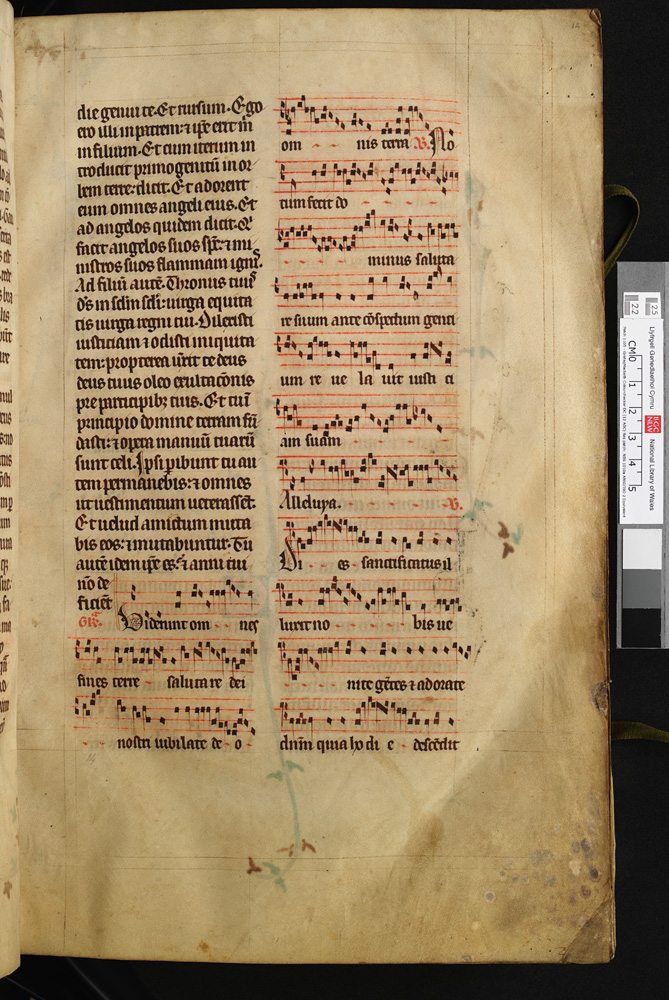 die genui te. Et rursum. Ego
ero illi in patrem: ⁊ ip̄e erit m̄
in filium. Et cum iterum in
troducit primogenitū in or
bem terre: dicit. Et adorent
eum omnes angeli eius. Et
ad angelos quidem dicit. Q̄
facit angelos suos sp̄c: ⁊ mi
nistros suos flammam ignis.
Ad filiū autē. Thronus tuus
d̄s in sc̄lm sc̄li: uirga equita
tis uirga regni tui. Dilexisti
iusticiam ⁊ odisti iniquita
tem: propterea ūxit te deus
deus tuus oleo exultac̄onis
pre participibꝫ tuis. Et tu ī
principio domine terram fū
dasti: ⁊ opera manuū tuarū
sunt celi. Ipsi ꝑibunt tu au
tem permanebis: ⁊ omnes
ut uestimentum ueterascēt.
Et uelud amictum muta
bis eos: ⁊ mutabuntur. Tu
autē idem ip̄e es: ⁊ anni tui
nō de
ficiēt
Gr̄. Viderunt om nes
fines terre saluta re dei
nostri iubilate de o
om nis terra V. No
tum fecit do
minus saluta
re suum ante cōspectum genti
um re ue la uit iusti ci
am suam
Alleluya. V.
Di es sanctificatus il
luxit no bis ue
nite gētes ⁊ adorate
dn̄m quia ho di e descēdit
14
Llyfrgell Genedlaethol Cymru
National Library of Wales
LLGC
NLW
CM 0 1 2 3 4 5
2.2
2.5